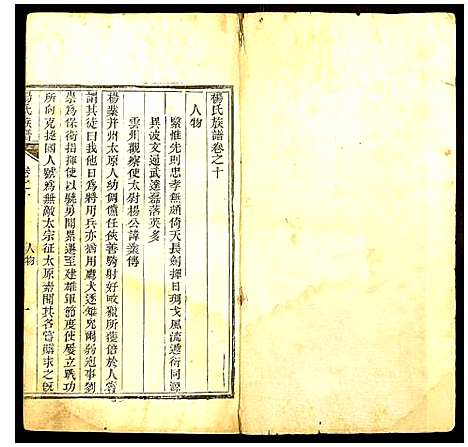 楊氏族譜卷之十
人物
繄惟先則忠孝無頗倚天長劍揮日戈風流遞衍同源
異波文通武達磊落英多
雲州觀察使太尉楊公諱業傳
楊業并州太原人幼倜儻任俠善騎射好畋獵所獲倍於人嘗
謂其徒曰我他日為將用兵亦猶用鷹犬逐雉兔爾弱冠事劉
崇為保衛指揮使以驍勇聞累遷至建雄軍節度使屢立戰功
所向克捷國人號為無敵太宗征太原素聞其名嘗購求之既
楊氏族譜 卷之十 人物 一